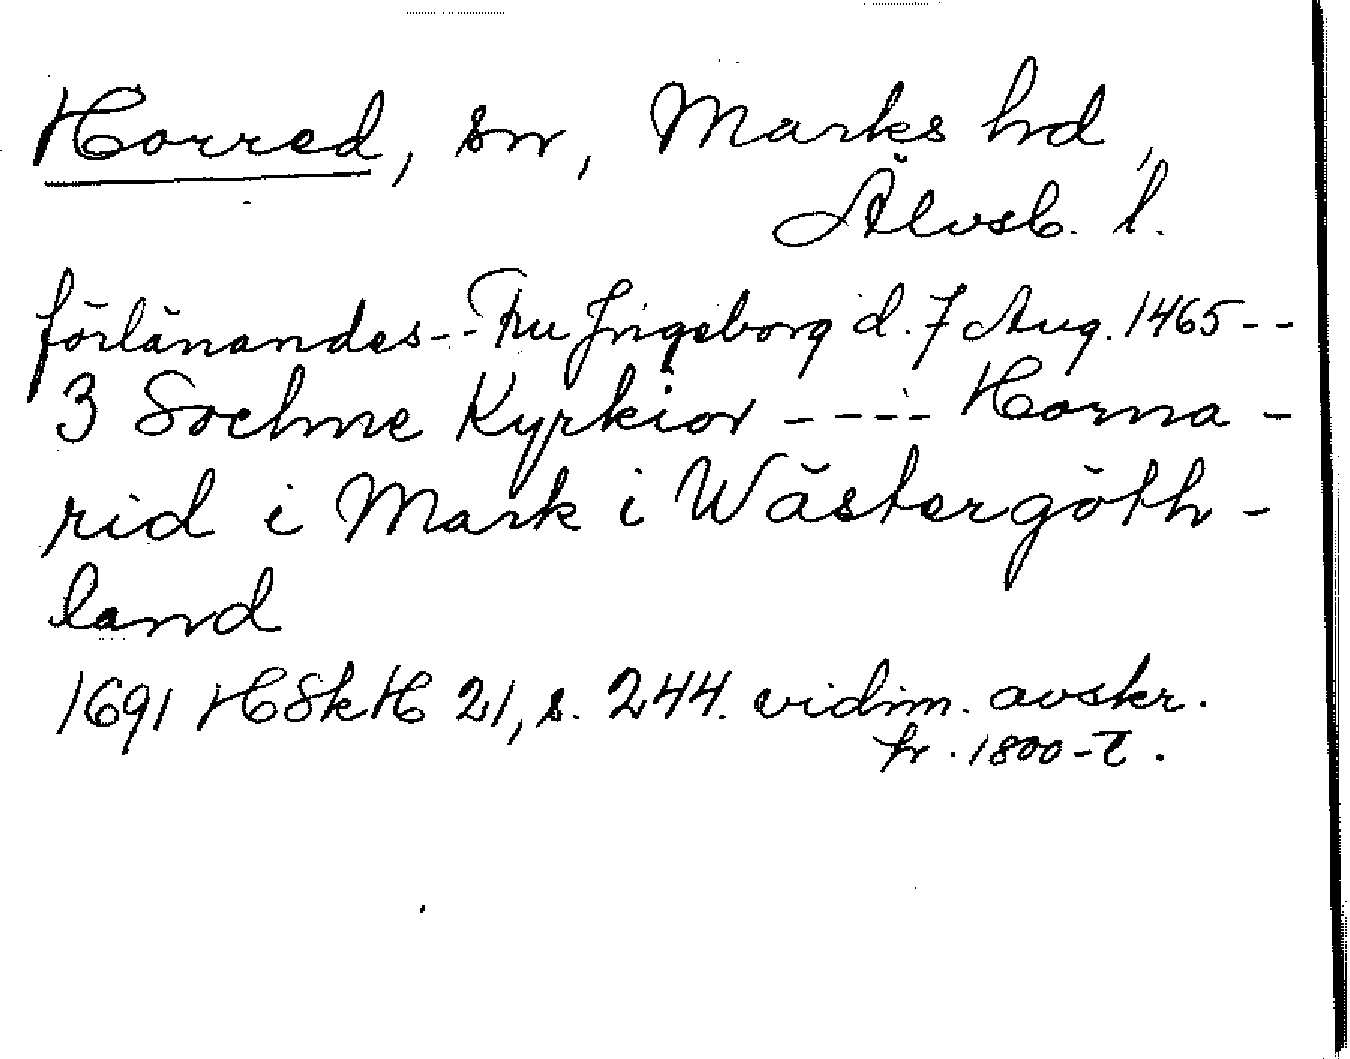 Horred, sn, Marks hd,
Älvsb. l.
förlänandes -- Fru Ingeborg d. 7 Aug. 1465 --
3 Sochne Kyrkior ---- Horna-
rid i Mark i Wästergöth-
land
1691 HSkH 21, s. 244. vidim. avskr.
fr. 1800-t.